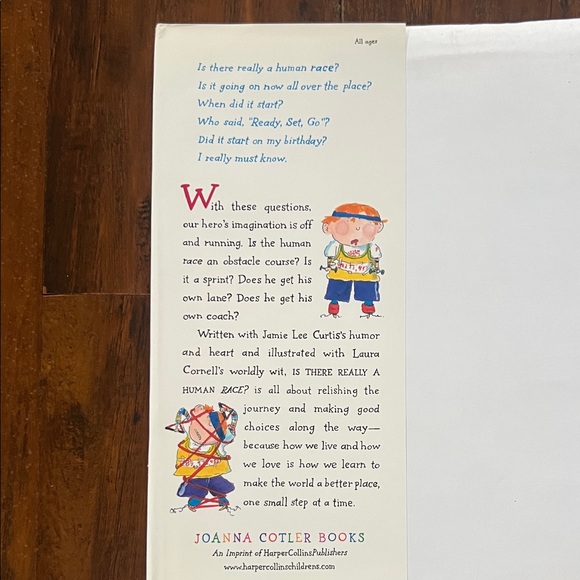 All ages
Is there really a human race?
Is it going on now all over the place?
When did it start?
Who said, "Ready, Set, Go"?
Did it start on my birthday?
I really must know.
With these questions,
our hero's imagination is off
and running. Is the human
race an obstacle course? Is
it a sprint? Does he get his
own lane? Does he get his
own coach?
Written with Jamie Lee Curtis's humor
and heart and illustrated with Laura
Cornell's worldly wit, IS THERE REALLY A
HUMAN RACE? is all about relishing the
journey and making good
choices along the way—
because how we live and how
we love is how we learn to
make the world a better place,
one small step at a time.
JOANNA COTLER BOOKS
An Imprint of HarperCollinsPublishers
www.harpercollinschildrens.com